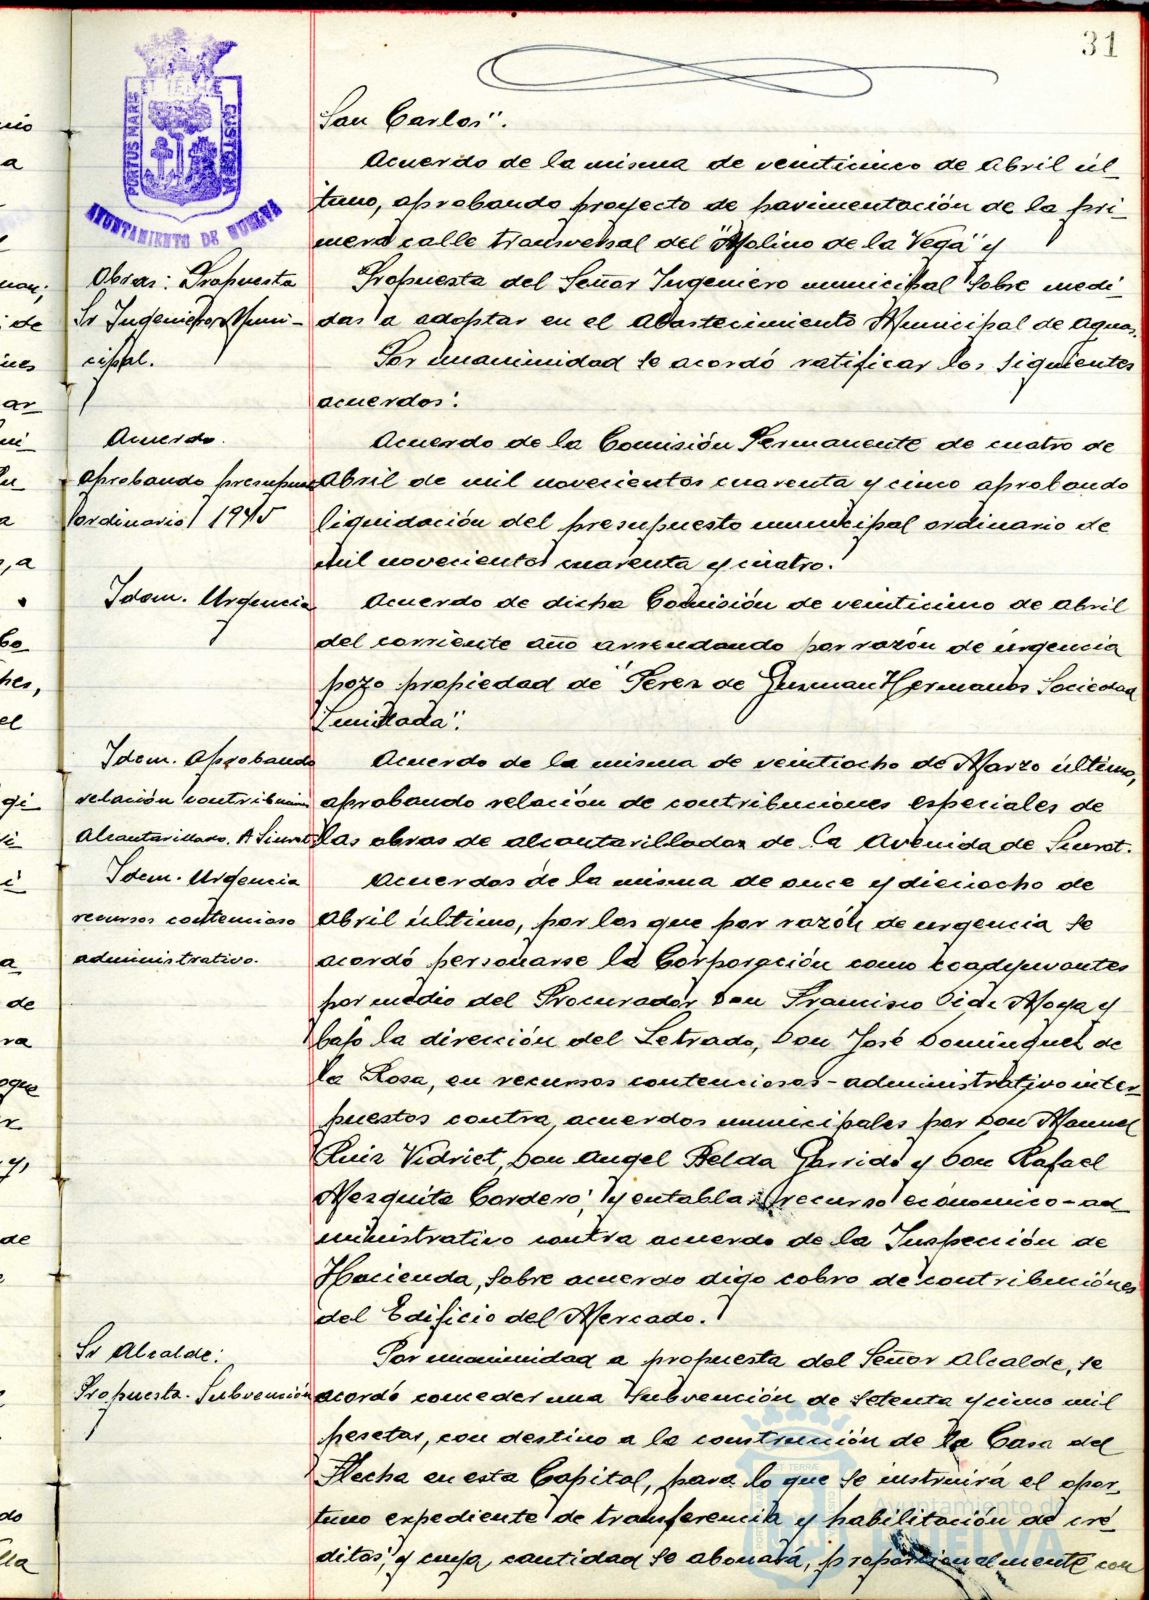 31
PORTUS MARIS ET TERRAE CUSTODIA
AYUNTAMIENTO DE HUELVA
San Carlos".
Acuerdo de la misma de veinticinco de Abril úl-
timo, aprobando proyecto de pavimentación de la pri-
mera calle transversal del "Molino de la Vega" y
Obras: Propuesta
Sr Ingeniero Muni-
cipal.
Propuesta del Señor Ingeniero municipal sobre medi-
das a adoptar en el Abastecimiento Municipal de Aguas.
Por unanimidad se acordó ratificar los siguientes
acuerdos:
Acuerdo.
aprobando presupues
ordinario 1945
Acuerdo de la Comisión Permanente de cuatro de
Abril de mil novecientos cuarenta y cinco aprobando
liquidación del presupuesto municipal ordinario de
mil novecientos cuarenta y cuatro.
Idem. Urgencia
Acuerdo de dicha Comisión de veinticinco de Abril
del corriente año arrendando por razón de urgencia
pozo propiedad de "Perez de Guzman Hermanos Sociedad
Limitada".
Idem. Aprobando
relación contribucion
Alcantarillado. A Siurot
Acuerdo de la misma de veintiocho de Marzo último,
aprobando relación de contribuciones especiales de
las obras de alcantarillados de la Avenida de Siurot.
Idem. Urgencia
recursos contencioso
administrativo.
Acuerdos de la misma de once y dieciocho de
Abril último, por los que por razón de urgencia se
acordó personarse la Corporación como coadyuvantes
por medio del Procurador Don Francisco Oide Moya y
bajo la dirección del Letrado, Don José Dominguez de
la Rosa, en recursos contenciosos-administrativo inter-
puestos contra acuerdos municipales por Don Manuel
Ruiz Vidriet, Don Angel Belda Garrido y Don Rafael
Mezquita Cordero; y entablar recurso económico-ad
ministrativo contra acuerdo de la Inspección de
Hacienda, sobre acuerdo digo cobro de contribuciónes
del Edificio del Mercado.
Sr Alcalde:
Propuesta. Subvención
Por unanimidad a propuesta del Señor Alcalde, se
acordó conceder una subvención de setenta y cinco mil
pesetas, con destino a la construcción de la Casa del
Flecha en esta Capital, para lo que se instruirá el opor-
tuno expediente de transferencia y habilitación de cré-
ditos, y cuya cantidad se abonará, proporcionalmente con
Ayuntamiento de
HUELVA